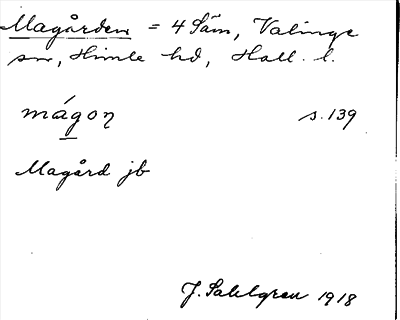 Magården = 4 Säm, Valinge
sn, Himle hd, Hall. l.
mágoŋ s. 139
Magård jb
J. Sahlgren 1918